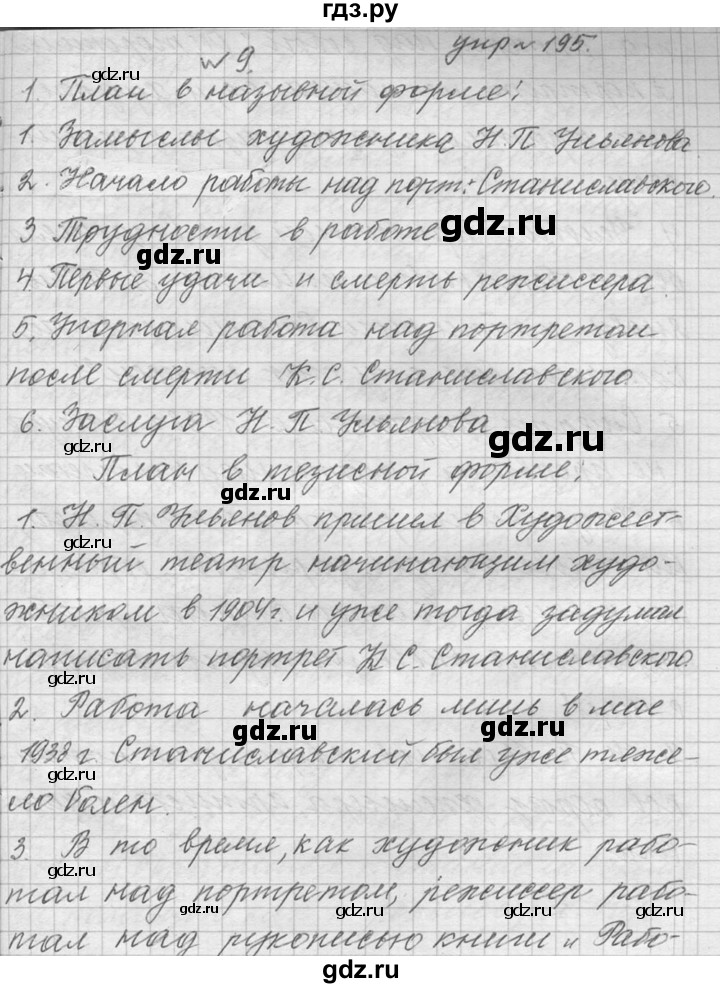 гдз.ру
№9. упр№195.
1. План в назывной форме:
1. Замыслы художника Н.П Ульянова.
2. Начало работы над порт. Станиславского.
3 Трудности в работе
gdz.ru
gdz.ru
4 Первые удачи и смерть режиссера.
5. Упорная работа над портретом
после смерти К.С. Станиславского
6. Заслуга Н. П Ульянова
gdz.ru
gdz.ru
План в тезисной форме:
gdz.ru
1. Н. П. Ульянов пришел в Художест-
gdz.ru
венный театр начинающим худо-
жником в 1904г. и уже тогда задумал
написать портрет К С. Станиславского
gdz.ru
2. Работа началась лишь в мае
gdz.ru
gdz.ru
1938 г Станиславский был уже тяже-
ло болен.
3. В то время, как художник рабо-
тал над портретом, режиссер рабо-
gdz.ru
gdz.ru
тал над рукописью книги „Рабо-
gdz.ru
gdz.ru